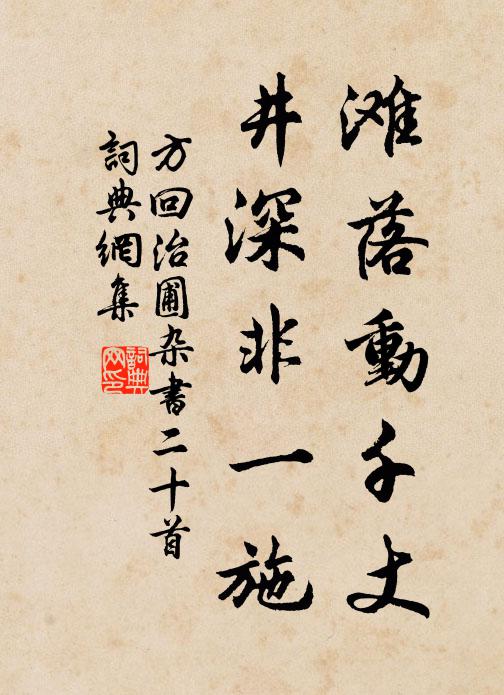 滩落動千丈
井深非一施
方回治圃杂書二十首
詞典網集
詞典网印